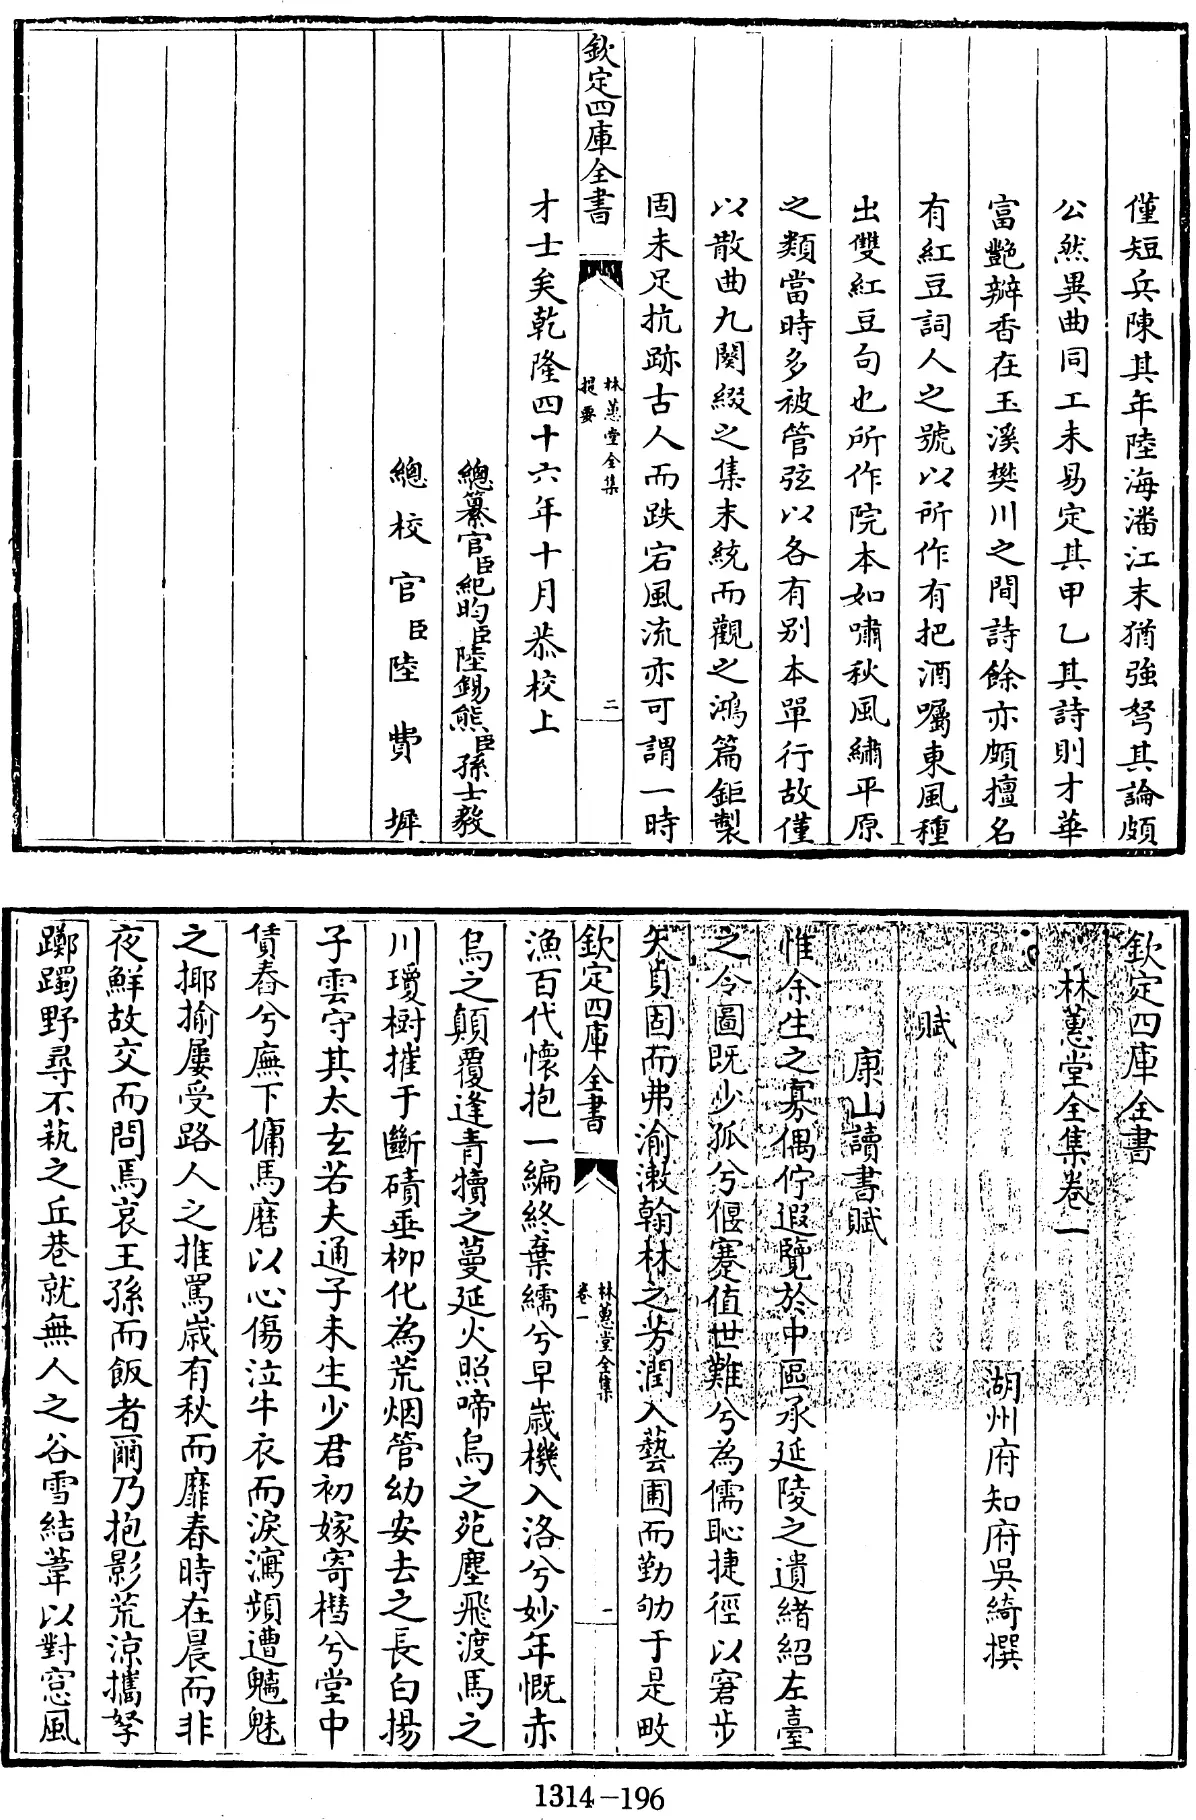 僅短兵陳其年陸海潘江末猶強弩其論頗
公然異曲同工未易定其甲乙其詩則才華
富艶瓣香在玉溪樊川之間詩餘亦頗擅名
有紅豆詞人之號以所作有把酒囑東風種
出雙紅豆句也所作院本如嘯秋風繡平原
之類當時多被管弦以各有别本單行故僅
以散曲九闋綴之集末統而觀之鴻篇鉅製
固未足抗跡古人而跌宕風流亦可謂一時
欽定四庫全書
林蕙堂全集
提要
二
才士矣乾隆四十六年十月恭校上
總纂官臣紀昀臣陸錫熊臣孫士毅
總校官臣陸費墀
欽定四庫全書
林蕙堂全集卷一
湖州府知府吳綺撰
賦
康山讀書賦
惟余生之寡偶佇遐覽於中區承延陵之遺緒紹左臺
之令圖既少孤兮偃蹇值世難兮為儒恥捷徑以窘步
矢貞固而弗渝漱翰林之芳潤入藝圃而勤劬于是畋
欽定四庫全書
林蕙堂全集
卷一
一
漁百代懷抱一編終棄繻兮早歲機入洛兮妙年慨赤
烏之顛覆逢青犢之蔓延火照啼烏之苑塵飛渡馬之
川瓊樹摧于斷磧垂柳化為荒烟管幼安去之長白揚
子雲守其太玄若夫通子未生少君初嫁寄櫗兮堂中
賃舂兮廡下傭馬磨以心傷泣牛衣而淚瀉頻遭魑魅
之揶揄屢受路人之推罵歲有秋而靡春時在晨而非
夜鮮故交而問焉哀王孫而飯者爾乃抱影荒涼攜孥
躑躅野尋不蓺之丘巷就無人之谷雪結葦以對窓風
1314-196